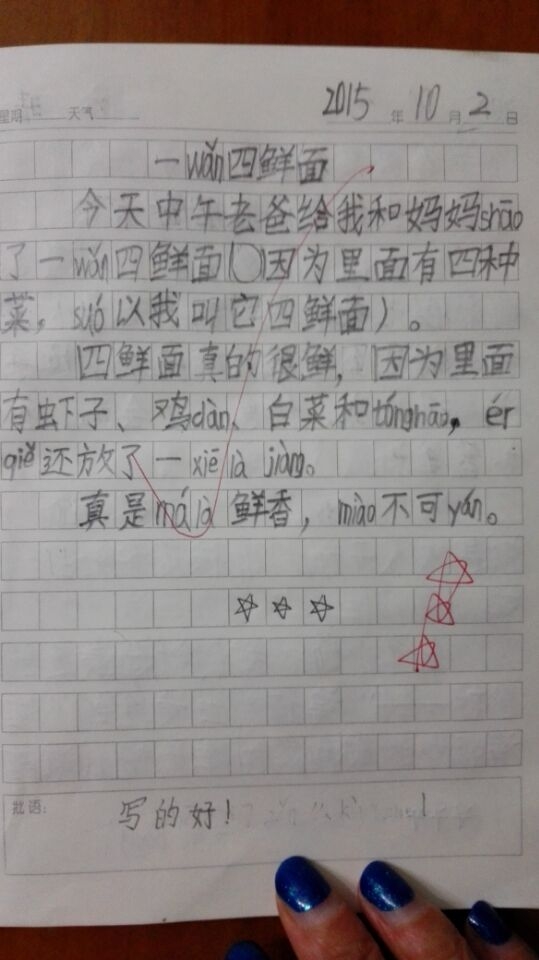 星期 天气 2015 年 10 月 2 日
一wǎn四鲜面
今天中午老爸给我和妈妈shāo
了一wǎn四鲜面(因为里面有四种
菜，suó以我叫它四鲜面)。
四鲜面真的很鲜，因为里面
有虾子、鸡dàn、白菜和tónghāo，ér
qiě还放了一xiē là jiàng。
真是má là鲜香，miào不可yán。
批语：写的好！